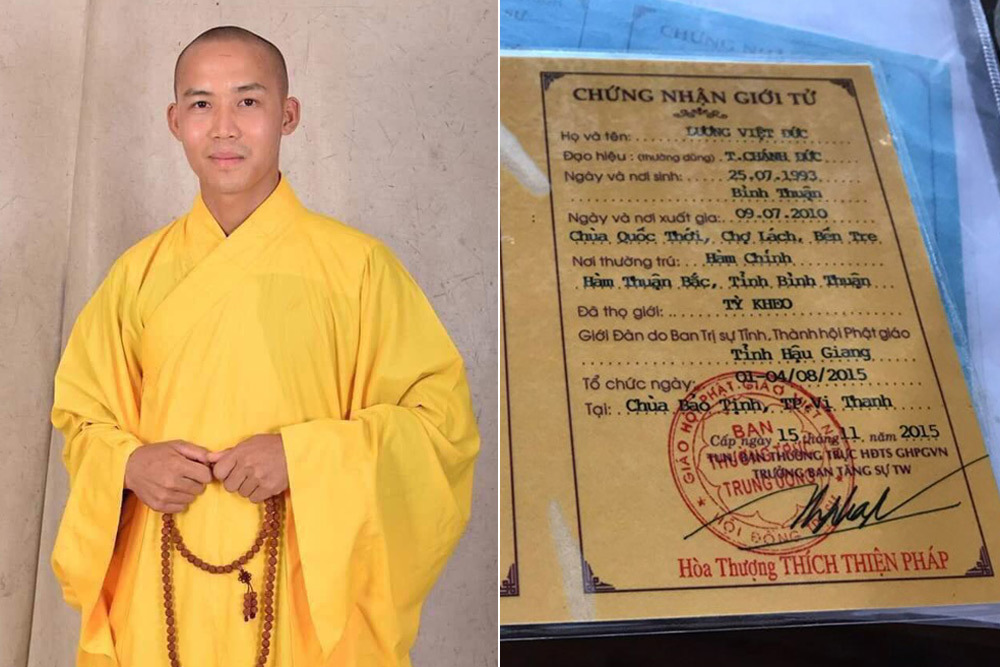 CHỨNG NHẬN
CHỨNG NHẬN GIỚI TỬ
Họ và tên: LƯƠNG VIỆT ĐỨC
Đạo hiệu: (thường dùng) T.CHÁNH ĐỨC
Ngày và nơi sinh: 25.07.1993
Bình Thuận
Ngày và nơi xuất gia: 09.07.2010
Chùa Quốc Thới, Chợ Lách, Bến Tre
Nơi thường trú: Hàm Chính
Hàm Thuận Bắc, Tỉnh Bình Thuận
Đã thọ giới: TỲ KHEO
Giới Đàn do Ban Trị sự Tỉnh, Thành hội Phật giáo
Tỉnh Hậu Giang
Tổ chức ngày: 01-04/08/2015
Tại: Chùa Bảo Tịnh, TP.Vị Thanh
Cấp ngày 15 tháng 11 năm 2015
TUN. BAN THƯỜNG TRỰC HĐTS GHPGVN
TRƯỞNG BAN TĂNG SỰ TW
GIÁO HỘI PHẬT GIÁO VIỆT
BAN
THƯỜNG TRỰC
TRUNG ƯƠNG
HỘI ĐỒNG
Hòa Thượng THÍCH THIỆN PHÁP